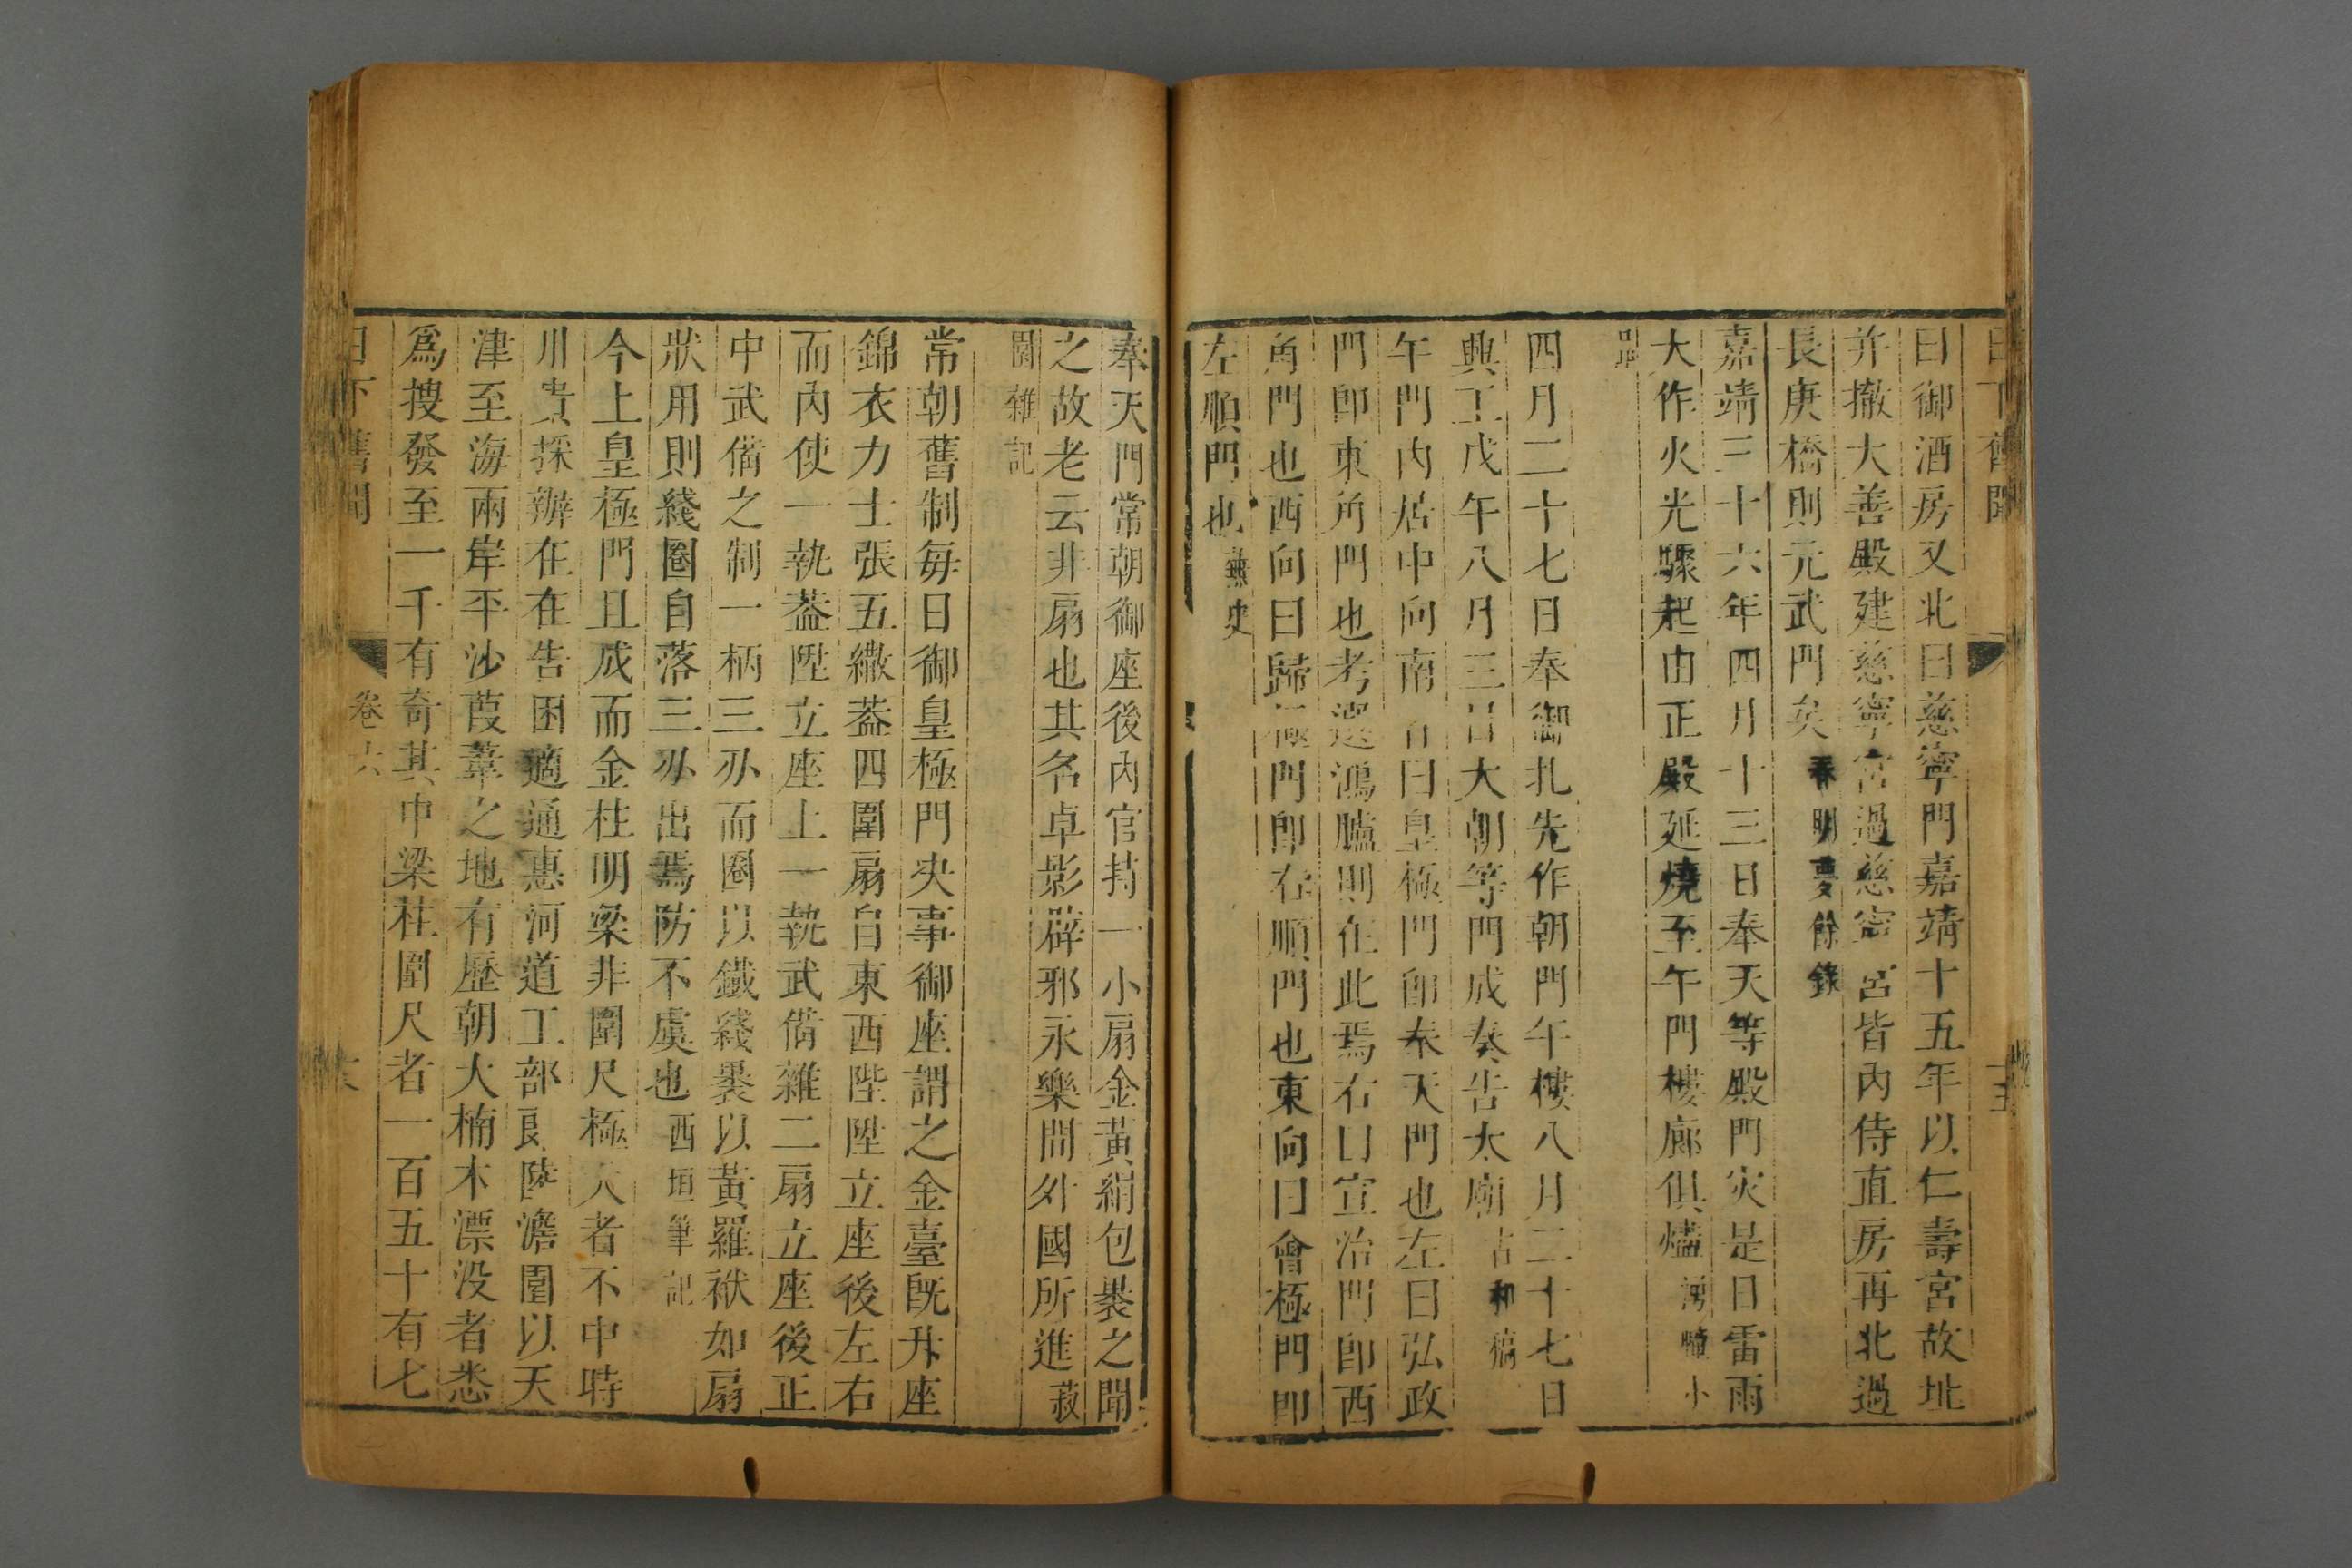 日下舊聞
曰御酒房又北曰慈寧門嘉靖十五年以仁壽宮故址
并撤大善殿建慈寧宮過慈寧宮皆內侍直房再北過
長庚橋則元武門矣春明夢餘錄
嘉靖三十六年四月十三日奉天等殿門災是日雷雨
大作火光驟起由正殿延燒至午門樓廊俱燼湧幢小
品
四月二十七日奉御札先作朝門午樓八月二十七日
興工戊午八月三日大朝等門成奏告太廟古和稿
午門內居中向南者曰皇極門卽奉天門也左曰弘政
門卽東角門也考選鴻臚則在此焉右曰宣治門卽西
角門也西向曰歸極門卽右順門也東向曰會極門卽
左順門也蕪史
奉天門常朝御座後內官持一小扇金黃絹包裹之聞
之故老云非扇也其名卓影辟邪永樂間外國所進菽
園雜記
常朝舊制每日御皇極門決事御座謂之金臺旣升座
錦衣力士張五繖葢四圍扇自東西陛陞立座後左右
而內使一執葢陞立座上一執武備雜二扇立座後正
中武備之制一柄三刅而圈以鐵綫裹以黃羅袱如扇
狀用則綫圈自落三刅出焉防不虞也西垣筆記
今上皇極門且成而金柱明梁非圍尺極大者不中時
川貴採辦在在告困適通惠河道工部良陸澹園以天
津至海兩岸平沙葭葦之地有歷朝大楠木漂没者悉
爲搜發至一千有奇其中梁柱圍尺者一百五十有七
日下舊聞 卷六